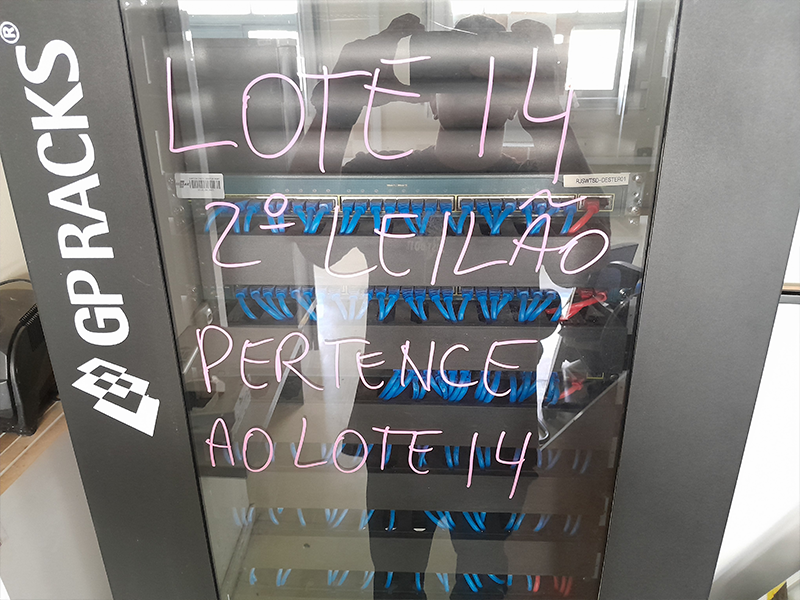 GP RACKS®
LOTE 14
RJSWTSD-DESTER01
2º LEILÃO
PERTENCE
AO LOTE 14